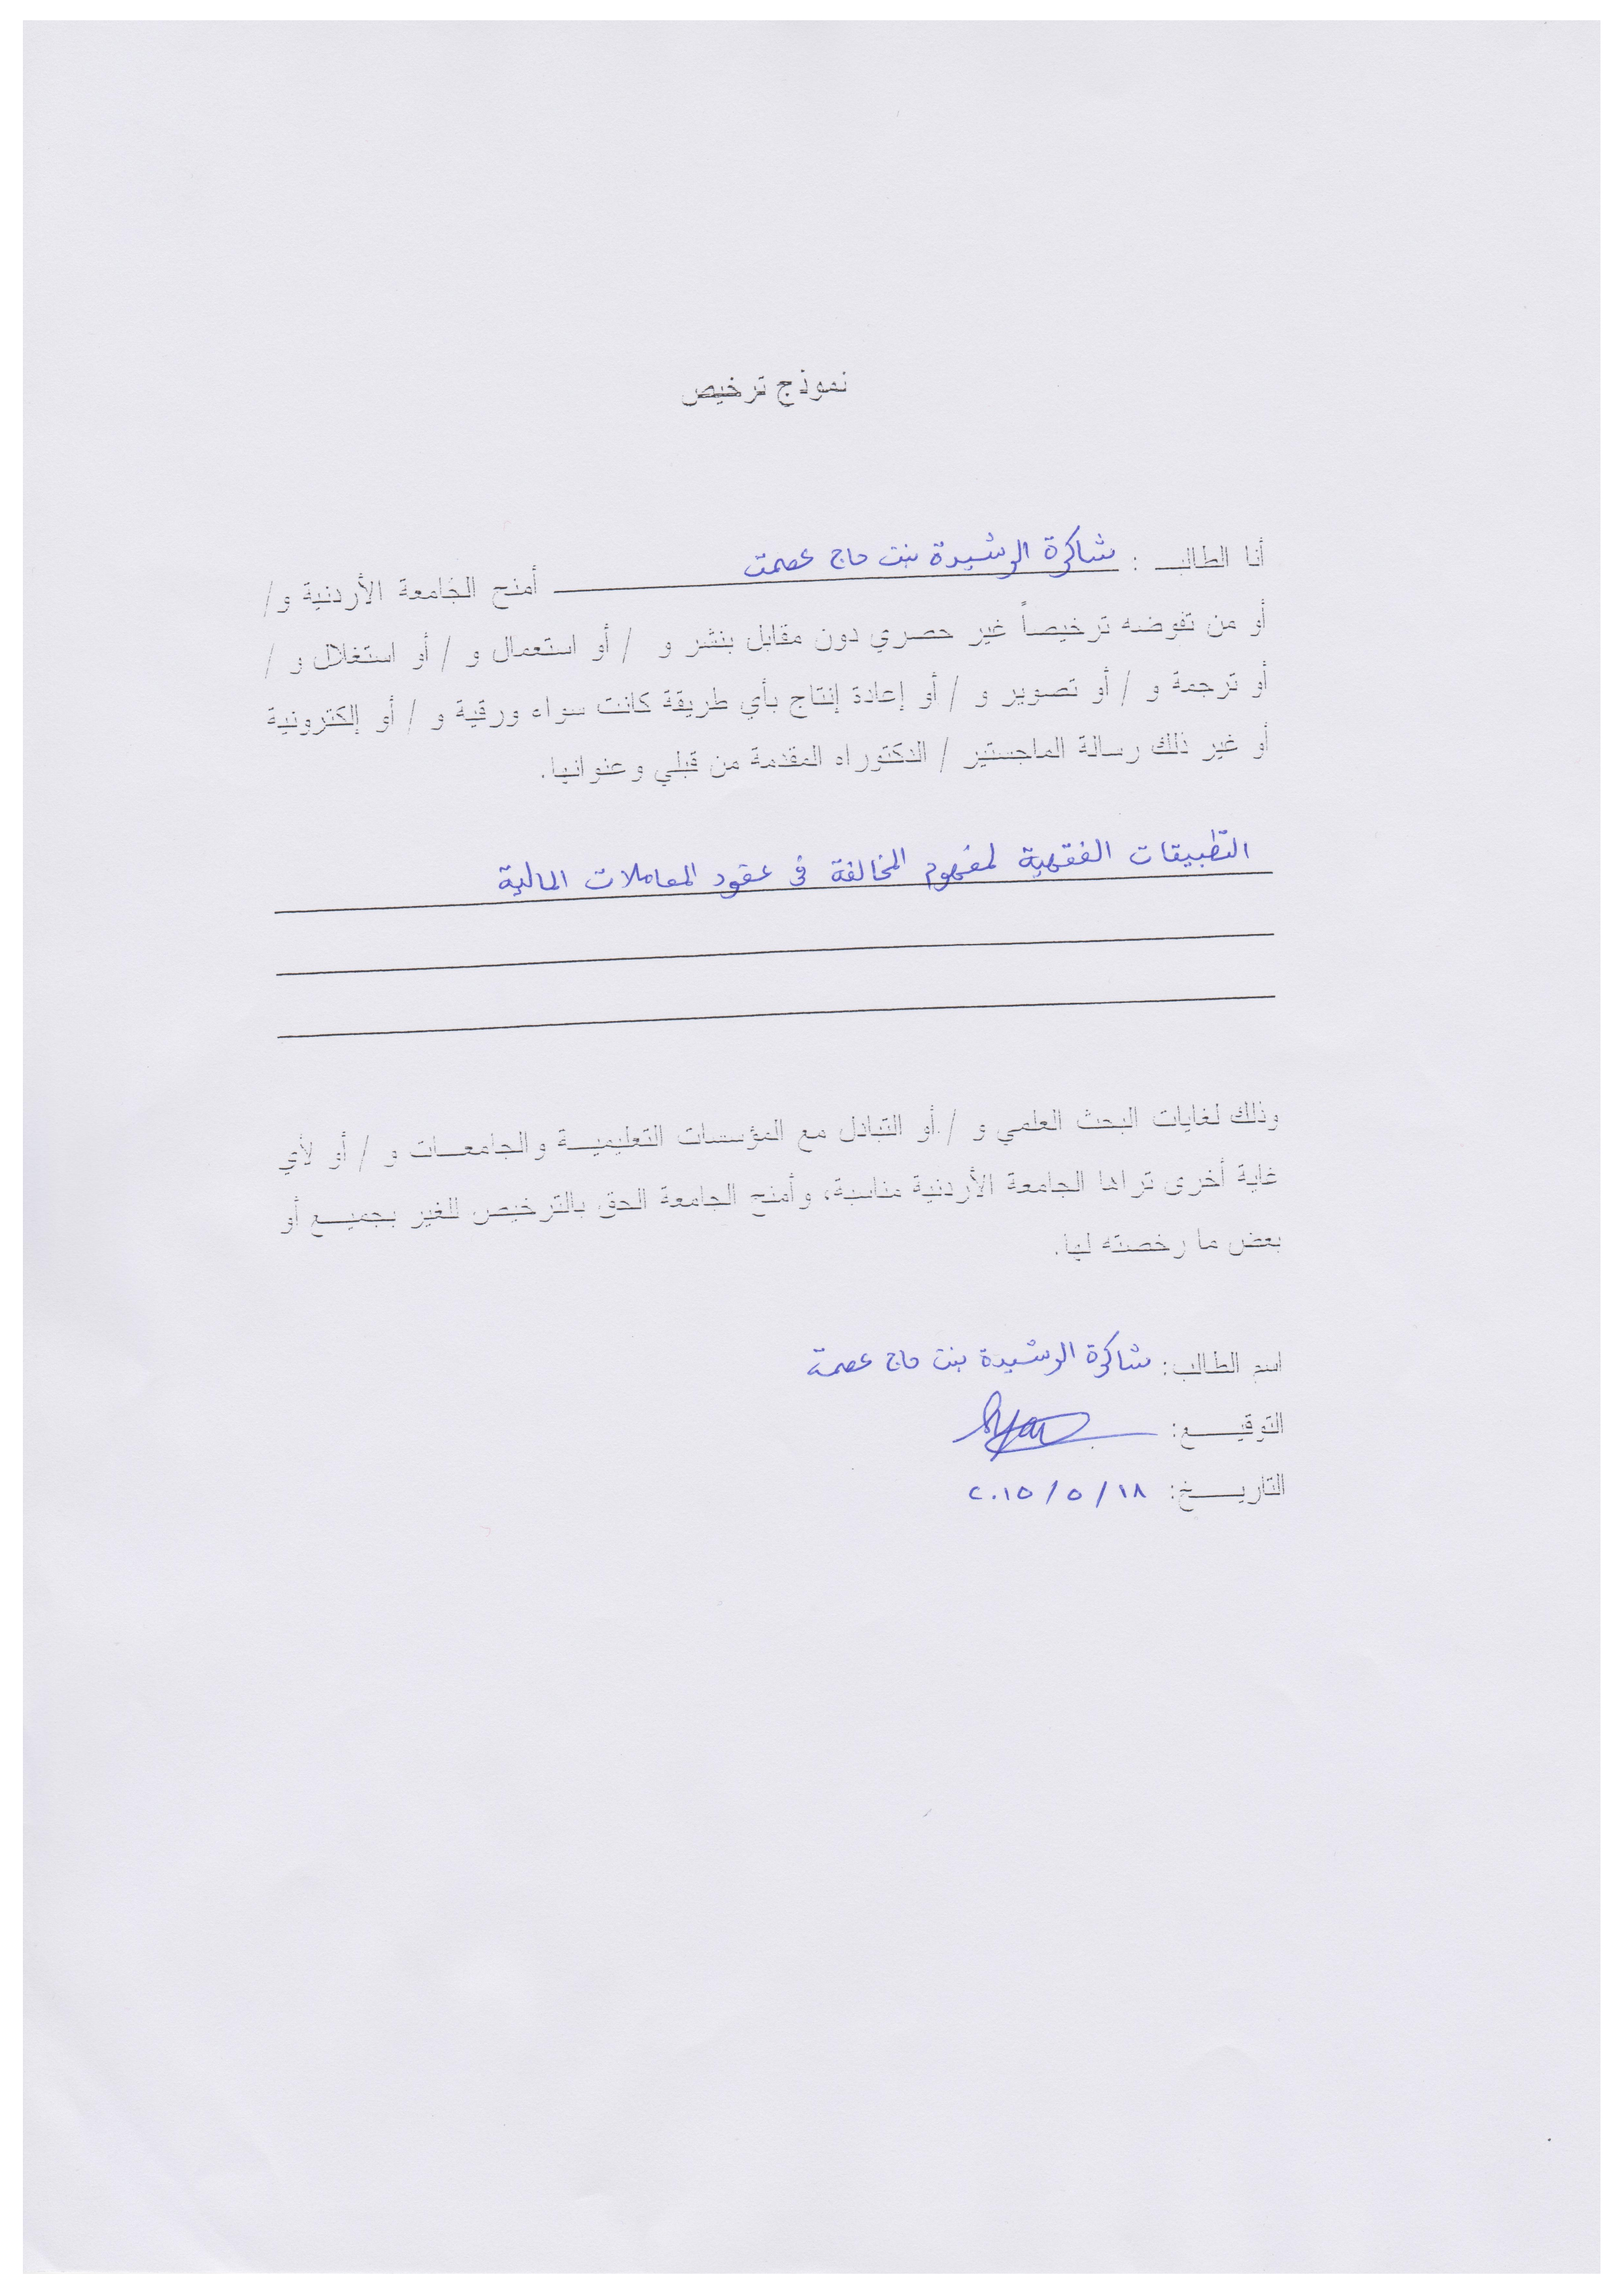 نموذج ترخيص
أنا الطالب : شاكرة الرشيدة بنت حاج عصمت أمنح الجامعة الأردنية و/
أو من تفوضه ترخيصاً غير حصري دون مقابل بنشر و / أو استعمال و / أو استغلال و /
أو ترجمة و / أو تصوير و / أو إعادة إنتاج بأي طريقة كانت سواء ورقية و / أو إلكترونية
أو غير ذلك رسالة الماجستير / الدكتوراه المقدمة من قبلي وعنوانها.
التطبيقات الفقهية لمفهوم المخالفة في عقود المعاملات المالية
وذلك لغايات البحث العلمي و / أو التبادل مع المؤسسات التعليمية والجامعات و / أو لأي
غاية أخرى تراها الجامعة الأردنية مناسبة، وأمنح الجامعة الحق بالترخيص للغير بجميع أو
بعض ما رخصته لها.
اسم الطالب: شاكرة الرشيدة بنت حاج عصمت
التوقيع:
التاريخ: ١٨ / ٥ / ٢٠١٥